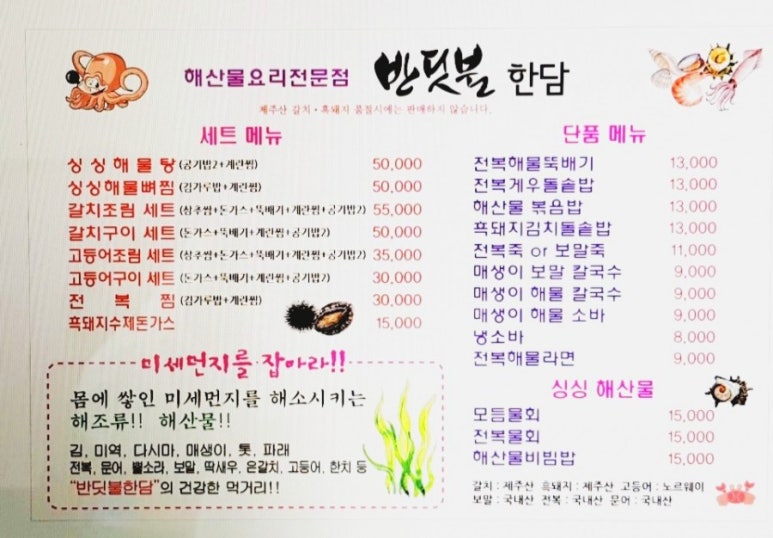 해산물요리전문점 반딧불 한담
제주산 갈치 · 흑돼지 품절시에는 판매하지 않습니다.
세트 메뉴
싱싱해물탕 (공기밥2+계란찜) 50,000
싱싱해물뼈찜 (김가루밥+계란찜) 50,000
갈치조림 세트 (상추쌈+돈가스+뚝배기+계란찜+공기밥2) 55,000
갈치구이 세트 (돈가스+뚝배기+계란찜+공기밥2) 50,000
고등어조림 세트 (상추쌈+돈가스+뚝배기+계란찜+공기밥2) 35,000
고등어구이 세트 (돈가스+뚝배기+계란찜+공기밥2) 30,000
전복찜 (김가루밥+계란찜) 30,000
흑돼지수제돈가스 15,000
미세먼지를 잡아라!!
몸에 쌓인 미세먼지를 해소시키는
해조류!! 해산물!!
김, 미역, 다시마, 매생이, 톳, 파래
전복, 문어, 뿔소라, 보말, 딱새우, 은갈치, 고등어, 한치 등
"반딧불한담"의 건강한 먹거리!!
단품 메뉴
전복해물뚝배기 13,000
전복게우돌솥밥 13,000
해산물 볶음밥 13,000
흑돼지김치돌솥밥 13,000
전복죽 or 보말죽 11,000
매생이 보말 칼국수 9,000
매생이 해물 칼국수 9,000
매생이 해물 소바 9,000
냉소바 8,000
전복해물라면 9,000
싱싱 해산물
모듬물회 15,000
전복물회 15,000
해산물비빔밥 15,000
갈치 : 제주산 흑돼지 : 제주산 고등어 : 노르웨이
보말 : 국내산 전복 : 국내산 문어 : 국내산